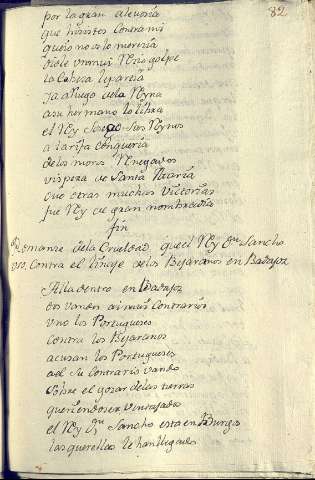 82
por la gran alevosia
que hisistes contra mi
que io no os lo meresia
diole un mui gran golpe
la cabesa le partia
ya a ruego de la Reyna
a su hermano lo libra
el Rey sus Reynos
a tarifa conqueria
de los moros Renegados
vispera de Santa Maria
que otras muchas victorias
fue Rey de gran nombradia
fin
Romanze de la Crueldad, que el Rey dn Sancho
uso, contra el linaje de los Bejaranos en Badajoz
Alla dentro en Badajoz
dos vandos ai mui contrarios
uno los Portugueses
contra los Bejaranos
acusan los Portugueses
a el su contrario vando
sobre el gosar de las tierras
queriendose,
el Rey dn Sancho esta en Burgos
las querellas le han llegado